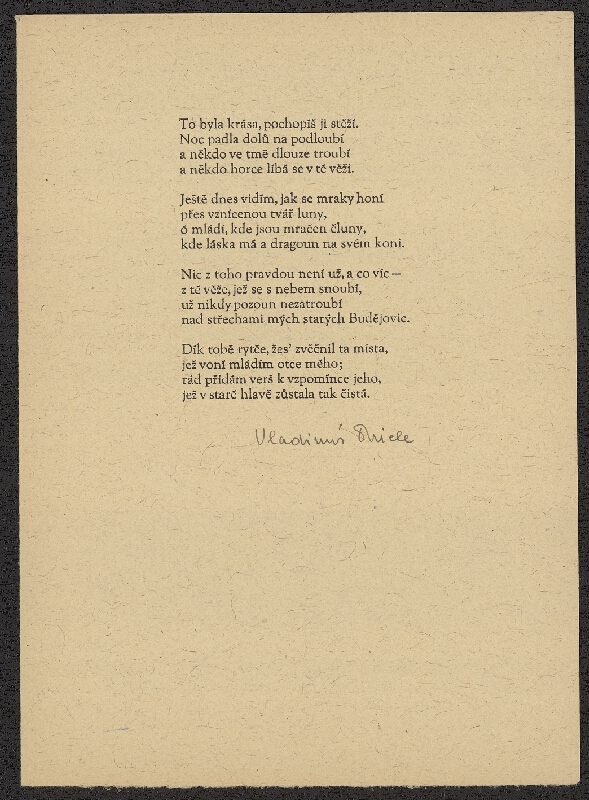 To byla krása, pochopíš ji stěží.
Noc padla dolů na podloubí
a někdo ve tmě dlouze troubí
a někdo horce líbá se v té věži.
Ještě dnes vidím, jak se mraky honí
přes vznícenou tvář luny,
ó mládí, kde jsou mračen čluny,
kde láska má a dragoun na svém koni.
Nic z toho pravdou není už, a co víc —
z té věže, jež se s nebem snoubí,
už nikdy pozoun nezatroubí
nad střechami mých starých Budějovic.
Dík tobě rytče, žes' zvěčnil ta místa,
jež voní mládím otce mého;
rád přidám verš k vzpomínce jeho,
jež v staré hlavě zůstala tak čistá.
Vladimír Thiele